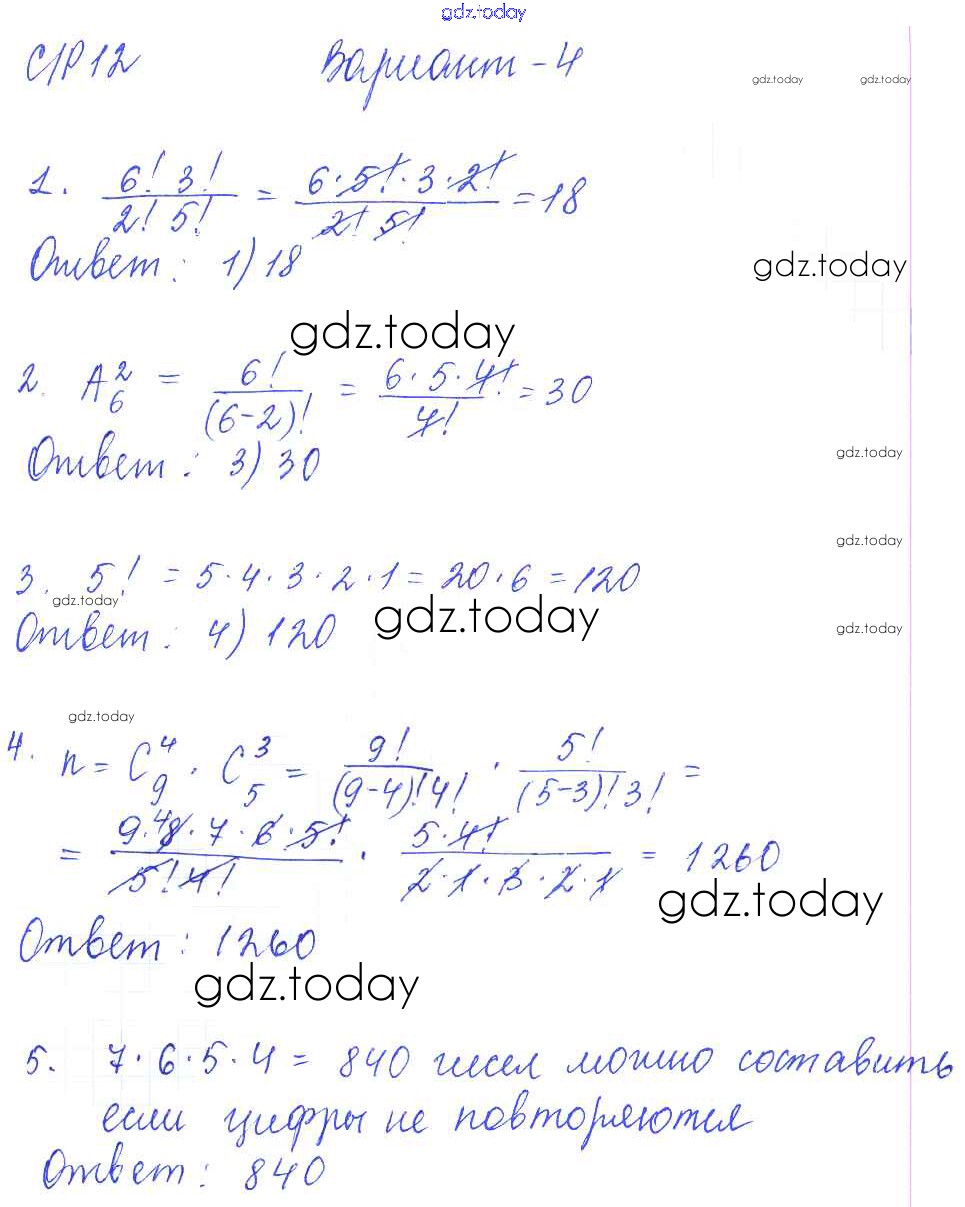 gdz.today
С/Р 12 Вариант-4
gdz.today gdz.today
1. 6! 3! / 2! 5! = 6·5!·3·2! / 2! 5! = 18
Ответ: 1) 18
gdz.today
gdz.today
2. A₆² = 6! / (6-2)! = 6·5·4! / 4! = 30
Ответ: 3) 30
gdz.today
gdz.today
3. 5! = 5·4·3·2·1 = 20·6 = 120
gdz.today
Ответ: 4) 120
gdz.today
gdz.today
gdz.today
4. n = C₉⁴ · C₅³ = 9! / (9-4)!4! · 5! / (5-3)!3! =
= 9·⁴8·7·6·5! / 5!4! · 5·4! / 2·1·3·2·1 = 1260
gdz.today
Ответ: 1260
gdz.today
5. 7·6·5·4 = 840 чисел можно составить
если цифры не повторяются
Ответ: 840